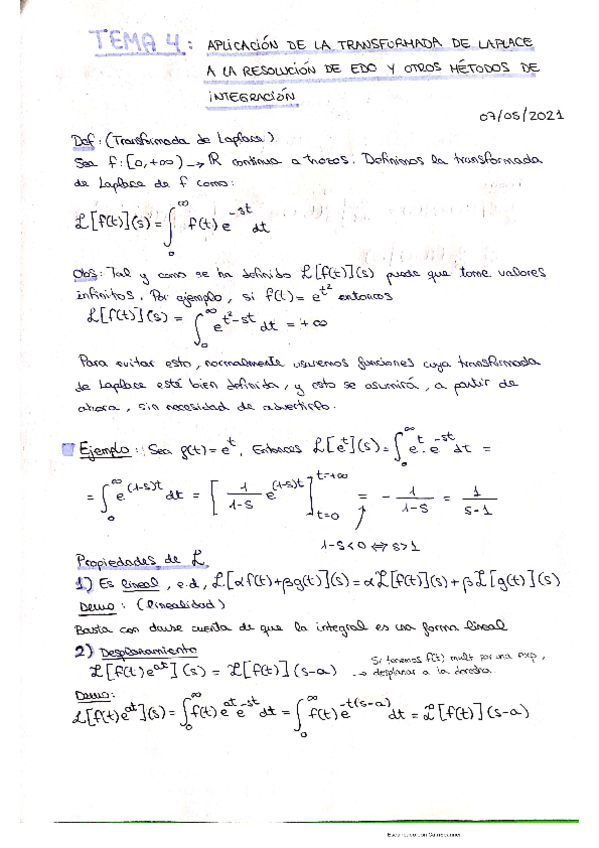 TEMA 4: APLICACIÓN DE LA TRANSFORMADA DE LAPLACE
A LA RESOLUCIÓN DE EDO Y OTROS MÉTODOS DE
INTEGRACIÓN
07/05/2021
Def: (Transformada de Laplace)
Sea f: [0,+∞) → ℝ continua a trozos. Definimos la transformada
de Laplace de f como:
ℒ[f(t)](s) = ∫₀^∞ f(t) e^{-st} dt
Obs: Tal y como se ha definido ℒ[f(t)](s) puede que tome valores
infinitos. Por ejemplo, si f(t) = e^{t²} entonces
ℒ[f(t)](s) = ∫₀^∞ e^{t²-st} dt = +∞
Para evitar esto, normalmente usaremos funciones cuya transformada
de Laplace esté bien definida, y esto se asumirá, a partir de
ahora, sin necesidad de advertirlo.
Ejemplo: Sea f(t) = e^t. Entonces ℒ[e^t](s) = ∫₀^∞ e^t · e^{-st} dt =
= ∫₀^∞ e^{(1-s)t} dt = [ 1/(1-s) e^{(1-s)t} ]_{t=0}^{t=+∞} = - 1/(1-s) = 1/(s-1)
1-s<0 ⇔ s>1
Propiedades de ℒ
1) Es lineal, e.d, ℒ[αf(t)+βg(t)](s) = αℒ[f(t)](s) + βℒ[g(t)](s)
Demo: (linealidad)
Basta con darse cuenta de que la integral es una forma lineal
2) Desplazamiento
ℒ[f(t)e^{at}](s) = ℒ[f(t)](s-a) → Si tenemos f(t) mult por una exp,
desplazar a la derecha.
Demo:
ℒ[f(t)e^{at}](s) = ∫₀^∞ f(t) e^{at} e^{-st} dt = ∫₀^∞ f(t) e^{-t(s-a)} dt = ℒ[f(t)](s-a)
Escaneado con CamScanner